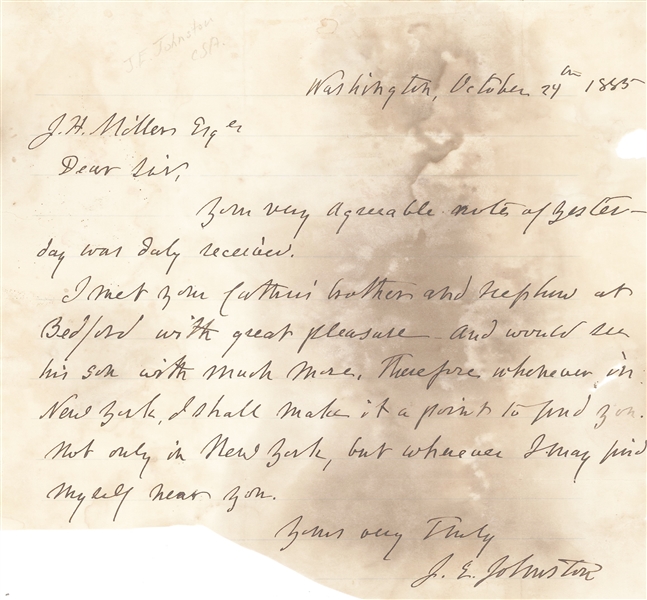 J. E. Johnston
CSA.
Washington, October 24th 1885
J. H. Millers Esqer
Dear Sir,
Your very agreeable notes of yester-
day was duly received.
I met your father's brother and nephew at
Bedford with great pleasure - and would see
his son with much more. Therefore whenever in
New York, I shall make it a point to find you.
Not only in New York, but wherever I may find
myself near you.
Yours very Truly
J. E. Johnston